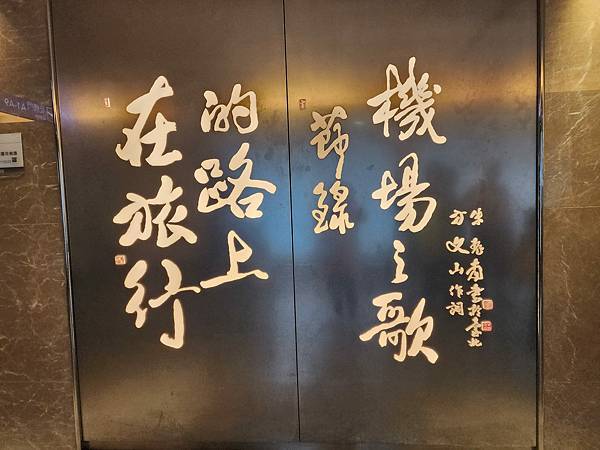 朱振南書於臺北
方文山作詞
機場之歌
節錄
的路上
在旅行